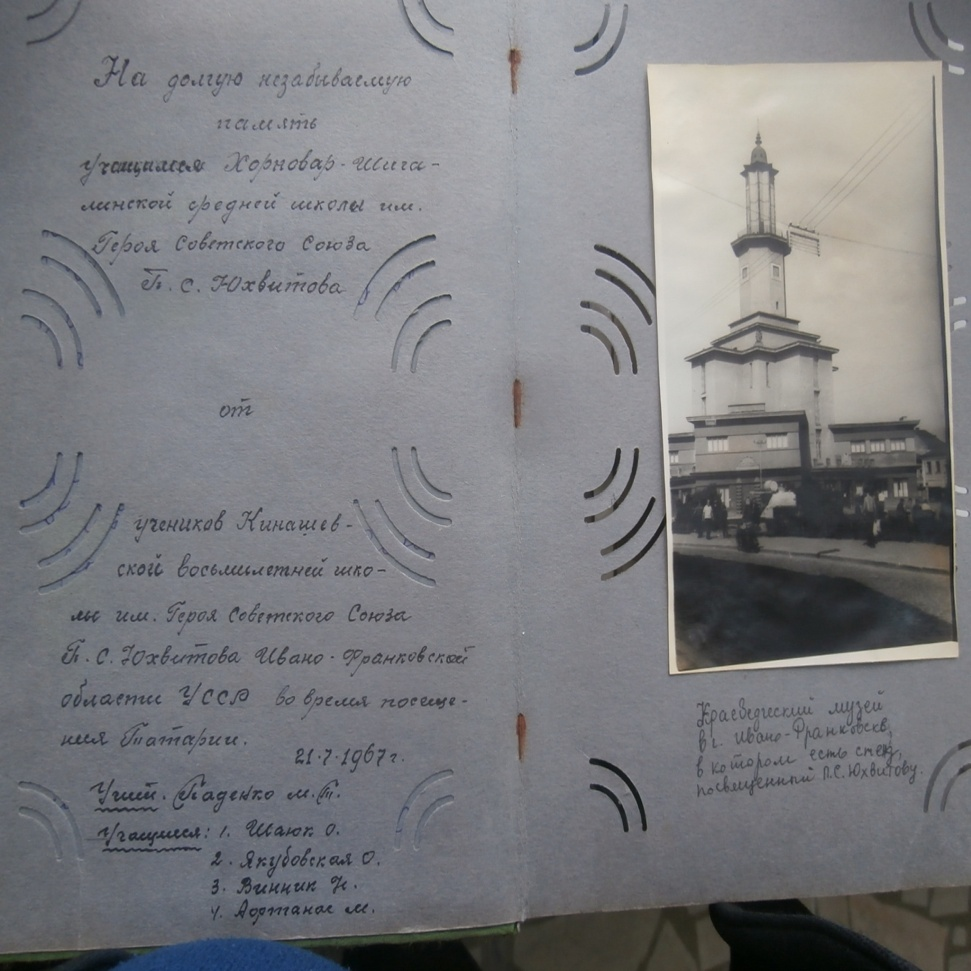 На долгую незабываемую
память
учащимся Хорновар-Шига-
линской средней школы им.
Героя Советского Союза
П. С. Юхвитова
от
учеников Кинашев-
ской восьмилетней шко-
лы им. Героя Советского Союза
П. С. Юхвитова Ивано-Франковской
области УССР во время посеще-
ния Татарии.
21.7.1967 г.
Учит. М.
Учащиеся: 1. Шаюк О.
2. Якубовская О.
3. Винник Н.
4. М.
музей
в г. Ивано-Франковске,
в котором есть стенд,
посвященный П.С. Юхвитову.